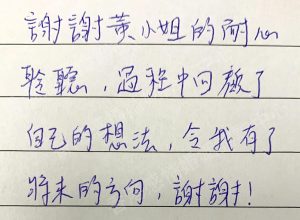 謝謝黃小姐的耐心
聆聽，過程中回顧了
自己的想法，令我有了
將來的方向，謝謝！